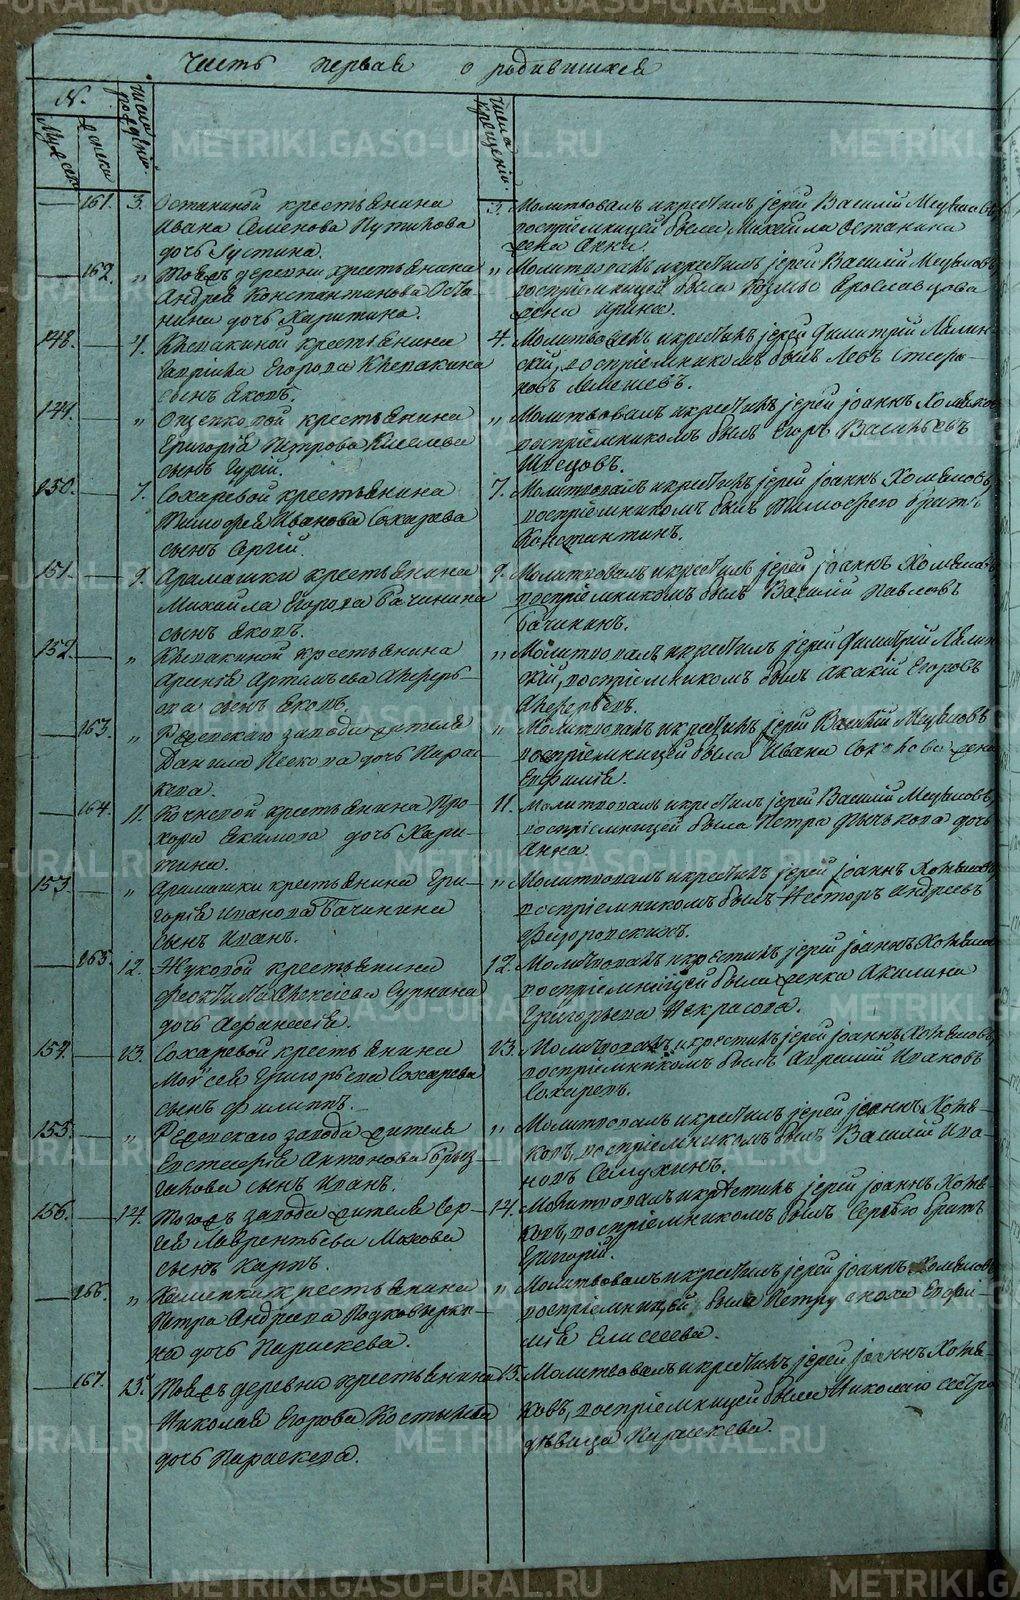 Часть первая о родившихся
N.
Муж. пола
Жен. пола
числа рождений.
числа крещений.
161. 3. Останиной крестьянина
Ивана Семенова Путилова
дочь Іустина.
3. Молитвовалъ и крестилъ іерей Василій
воспріемницей была Михаила Останина
жена Анна.
162. „ Тояжъ деревни крестьянина
Андрея Константинова Оста-
нина дочь Харитина.
„ Молитвовалъ и крестилъ іерей Василій
воспріемницей была Козьмы Ярославцова
жена Ирина.
148. 4. Клепакиной крестьянина
Гавріила Егорова Клепакина
сынъ Яковъ.
4. Молитвовалъ и крестилъ іерей Димитрій Ляпин-
скій, воспріемникомъ былъ Левъ
149. „ Ощепковой крестьянина
Григорія Петрова Киселева
сынъ Гурій.
„ Молитвовалъ и крестилъ іерей Іоаннъ Хомяковъ
воспріемникомъ былъ Егоръ Васильевъ
Швецовъ.
150. 7. Сохаревой крестьянина
Тимофея Иванова Сохарева
сынъ Сергій.
7. Молитвовалъ и крестилъ іерей Іоаннъ Хомяковъ,
воспріемникомъ былъ Тимофеев братъ
Константинъ.
151. 9. Арамашки крестьянина
Михаила Егорова Бачинина
сынъ Яковъ.
9. Молитвовалъ и крестилъ іерей Іоаннъ Хомяковъ
воспріемникомъ былъ Василій Павловъ
Бачининъ.
152. „ Клепакиной крестьянина
Арсенія Артемьева
сынъ Яковъ.
„ Молитвовалъ и крестилъ іерей Димитрій Ляпин-
скій, воспріемникомъ былъ Акакій Егоровъ
163. „ Режевскаго завода жителя
Данила Пескова дочь Пара-
скева.
„ Молитвовалъ и крестилъ іерей Василій
воспріемницей была Ивана Соколова жена
Евфимія.
164. 11. Кочневой крестьянина Про-
хора Екимова дочь Хари-
тина.
11. Молитвовалъ и крестилъ іерей Василій
воспріемницей была Петра дочь
Анна.
153. „ Арамашки крестьянина Гри-
горія Иванова Бачинина
сынъ Иванъ.
„ Молитвовалъ и крестилъ іерей Іоаннъ Хомяковъ
воспріемникомъ былъ Несторъ Андреевъ
165. 12. Жуковой крестьянина
Феоктиста Алексіева Сурнина
дочь Афанасія.
12. Молитвовалъ и крестилъ іерей Іоаннъ Хомяковъ
воспріемницей была женка Акилина
Григорьева Некрасова.
154. 13. Сохаревой крестьянина
Мойсея Григорьева Сохарева
сынъ Филиппъ.
13. Молитвовалъ и крестилъ іерей Іоаннъ Хомяковъ,
воспріемникомъ былъ Ивановъ
Сохаревъ.
155. „ Режевскаго завода жителя
Евстафія Антонова Брыз-
галова сынъ Иванъ.
„ Молитвовалъ и крестилъ іерей Іоаннъ Хомя-
ковъ, воспріемникомъ былъ Василій Ива-
новъ
156. 14. Тогожъ завода жителя Сер-
гея Лаврентьева Мохова
сынъ Карпъ.
14. Молитвовалъ и крестилъ іерей Іоаннъ Хомя-
ковъ, воспріемникомъ былъ братъ
Григорій.
166. „ Каменки крестьянина
Петра Андреева Подковырки-
на дочь Параскева.
„ Молитвовалъ и крестилъ іерей Іоаннъ Хомяковъ
воспріемницей была Петру сноха Евфи-
мія Елисеева.
167. 15. Тояжъ деревни крестьянина
Николая Егорова Костылева
дочь Параскева.
15. Молитвовалъ и крестилъ іерей Іоаннъ Хомя-
ковъ, воспріемницей была Николаю сестра
дѣвица Параскева.
METRIKI.GASO-URAL.RU